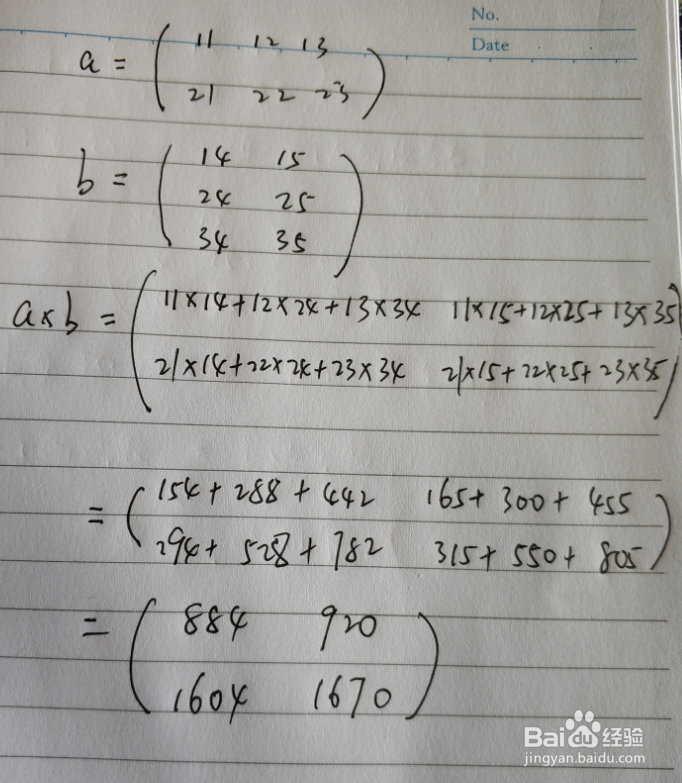 No.
Date
a = ( 11 12 13
21 22 23 )
b = ( 14 15
24 25
34 35 )
a×b = ( 11×14+12×24+13×34 11×15+12×25+13×35
21×14+22×24+23×34 21×15+22×25+23×35 )
= ( 154+288+442 165+300+455
294+528+782 315+550+805 )
= ( 884 920
1604 1670 )
Bai du 经验
jingyan.baidu.com